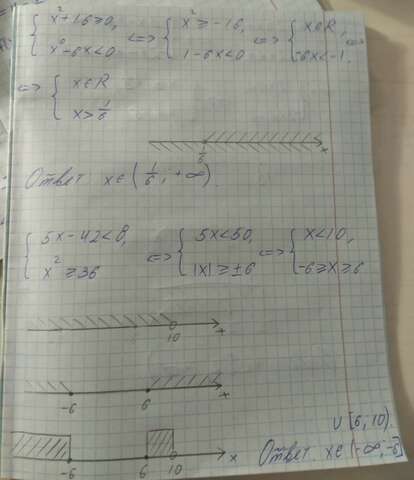 { x²+16≥0, x⁰-6x<0 <=> { x²≥-16, 1-6x<0 <=> { x∈R, -6x<-1. <=>
<=> { x∈R x>1/6
1/6 x
Ответ x∈(1/6; +∞).
{ 5x-42<8, x²≥36 <=> { 5x<50, |x|≥±6 <=> { x<10, -6≥x≥6
10 x
-6 6 x
-6 6 10 x
∪ [6, 10).
Ответ. x∈(-∞;-6]